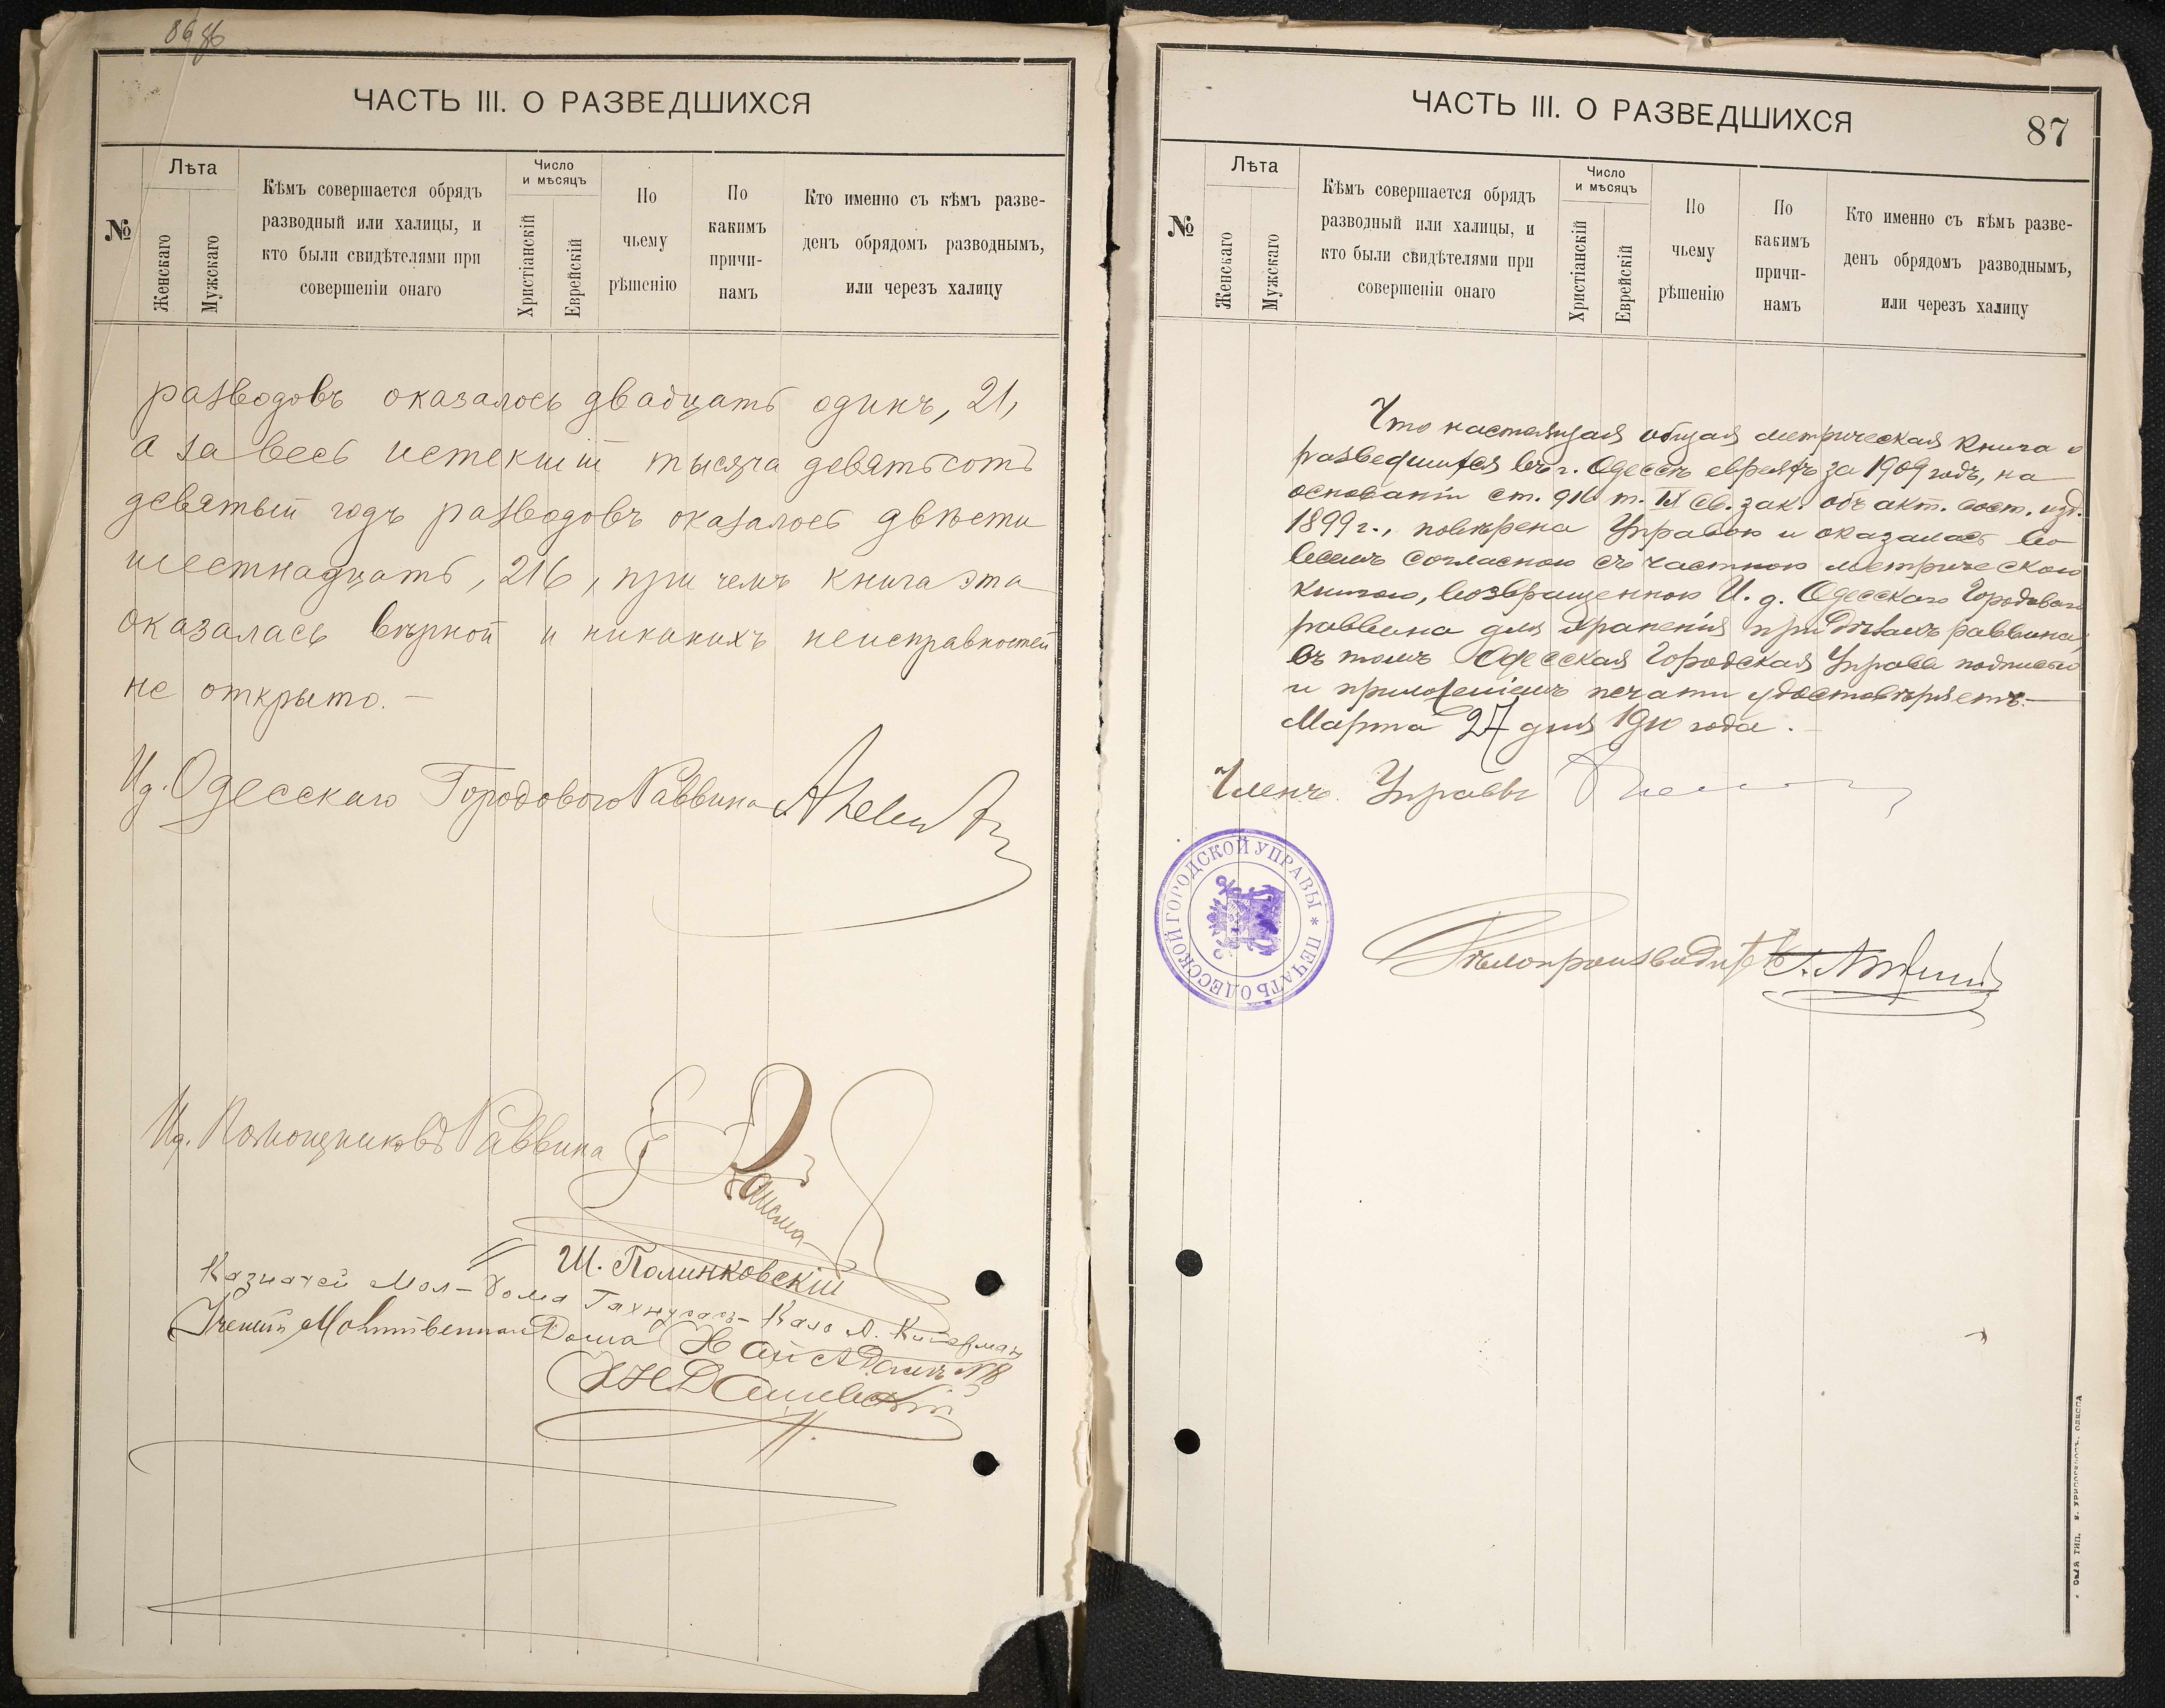 86 86
ЧАСТЬ III. О РАЗВЕДШИХСЯ
№
Лѣта
Женскаго
Мужскаго
Кѣмъ совершается обрядъ
разводный или халицы, и
кто были свидѣтелями при
совершеніи онаго
Число
и мѣсяцъ
Христіанскій
Еврейскій
По
чьему
рѣшенію
По
какимъ
причи-
намъ
Кто именно съ кѣмъ разве-
денъ обрядомъ разводнымъ,
или черезъ халицу
разводовъ оказалось двадцать одинъ, 21,
а за весь истекшій тысяча девятьсотъ
девятый годъ разводовъ оказалось двѣсти
шестнадцать, 216, при чемъ книга эта
оказалась вѣрной и никакихъ неисправностей
не открыто. —
И д. Одесскаго Городового Раввина
И д. Помощниковъ Раввина
Ш. Полинковскій
Казначей Мол-Дома
Ученый Молитвеннаго Дома
ЧАСТЬ III. О РАЗВЕДШИХСЯ
87
№
Лѣта
Женскаго
Мужскаго
Кѣмъ совершается обрядъ
разводный или халицы, и
кто были свидѣтелями при
совершеніи онаго
Число
и мѣсяцъ
Христіанскій
Еврейскій
По
чьему
рѣшенію
По
какимъ
причи-
намъ
Кто именно съ кѣмъ разве-
денъ обрядомъ разводнымъ,
или черезъ халицу
Что настоящая общая метрическая книга о
разведшихся въ г. Одессѣ евреяхъ за 1909 годъ, на
основаніи ст. 916 т. IX св. зак. объ акт. сост. изд.
1899 г., повѣрена Управою и оказалась во
всемъ согласною съ частною метрическою
книгою, возвращенною И. д. Одесскаго Городоваго
раввина для храненія при дѣлахъ раввина,
въ томъ Одесская Городская Управа подписью
и приложеніемъ печати удостовѣряетъ.—
Марта 27 дня 1910 года.
Членъ Управы
ПЕЧАТЬ ОДЕССКОЙ ГОРОДСКОЙ УПРАВЫ *
Дѣлопроизводитель
ТИП. ОДЕССА